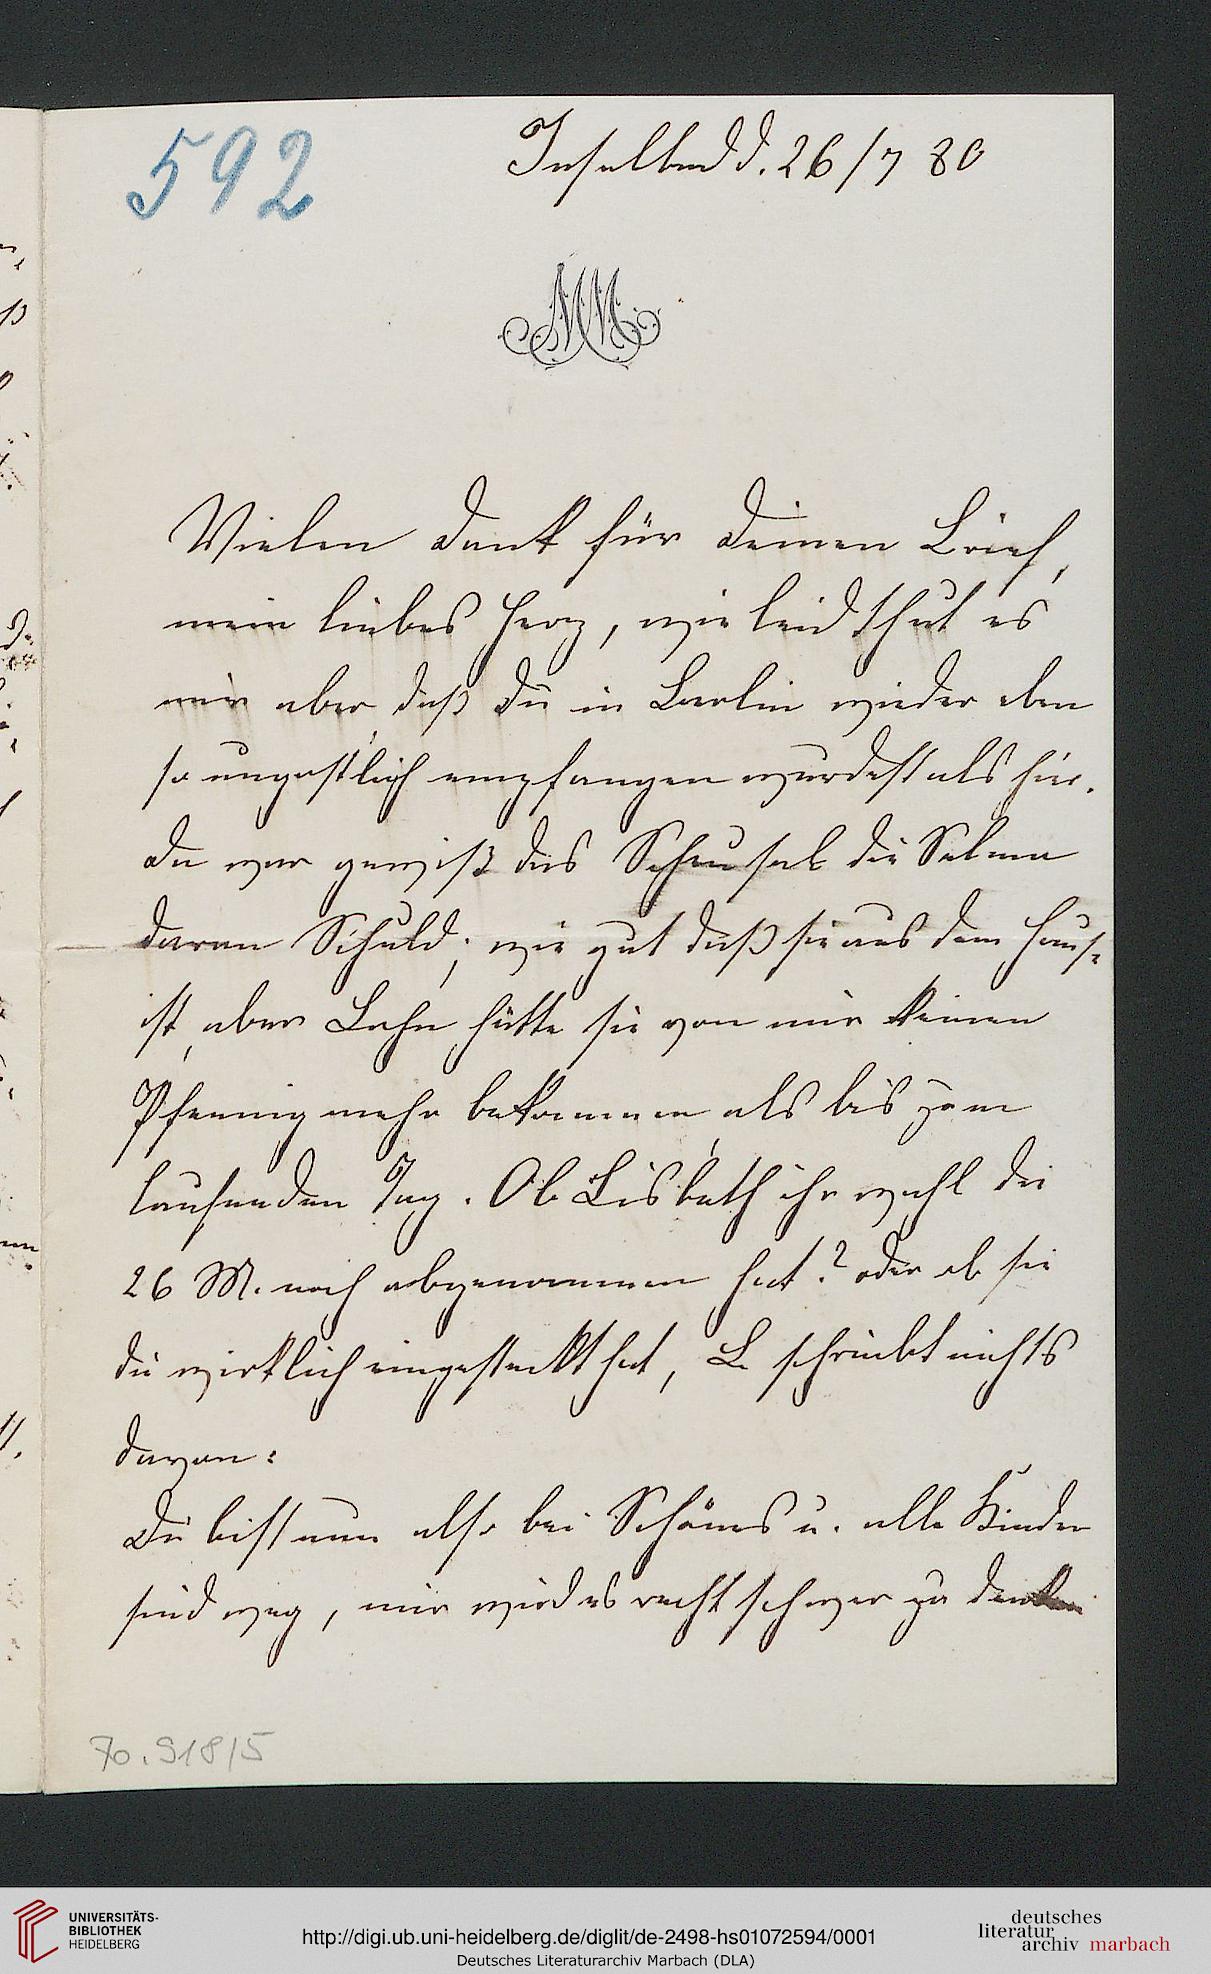 592
Inselbad d. 26/7 80
MM
Vielen Dank für Deinen Brief,
mein liebes Herz, wie leid thut es
mir aber, daß Du in Berlin wieder eben
so ungastlich empfangen wurdest als hier.
Da war gewiß das Scheusal die Selma
daran Schuld; wie gut daß sie aus dem Haus
ist, aber Lohn hätte sie von mir keinen
Pfennig mehr bekommen als bis zum
laufenden Tag. Ob Lisbeth ihr wohl die
26 M. noch abgenommen hat? oder ob sie
die wirklich eingesteckt hat, L. schreibt nichts
davon:
Du bist nun also bei Schönes u. alle Kinder
sind weg, mir wird es recht schwer zu denken
70.918/5
UNIVERSITÄTS-
BIBLIOTHEK
HEIDELBERG
http://digi.ub.uni-heidelberg.de/diglit/de-2498-hs01072594/0001
Deutsches Literaturarchiv Marbach (DLA)
deutsches
literatur
archiv marbach